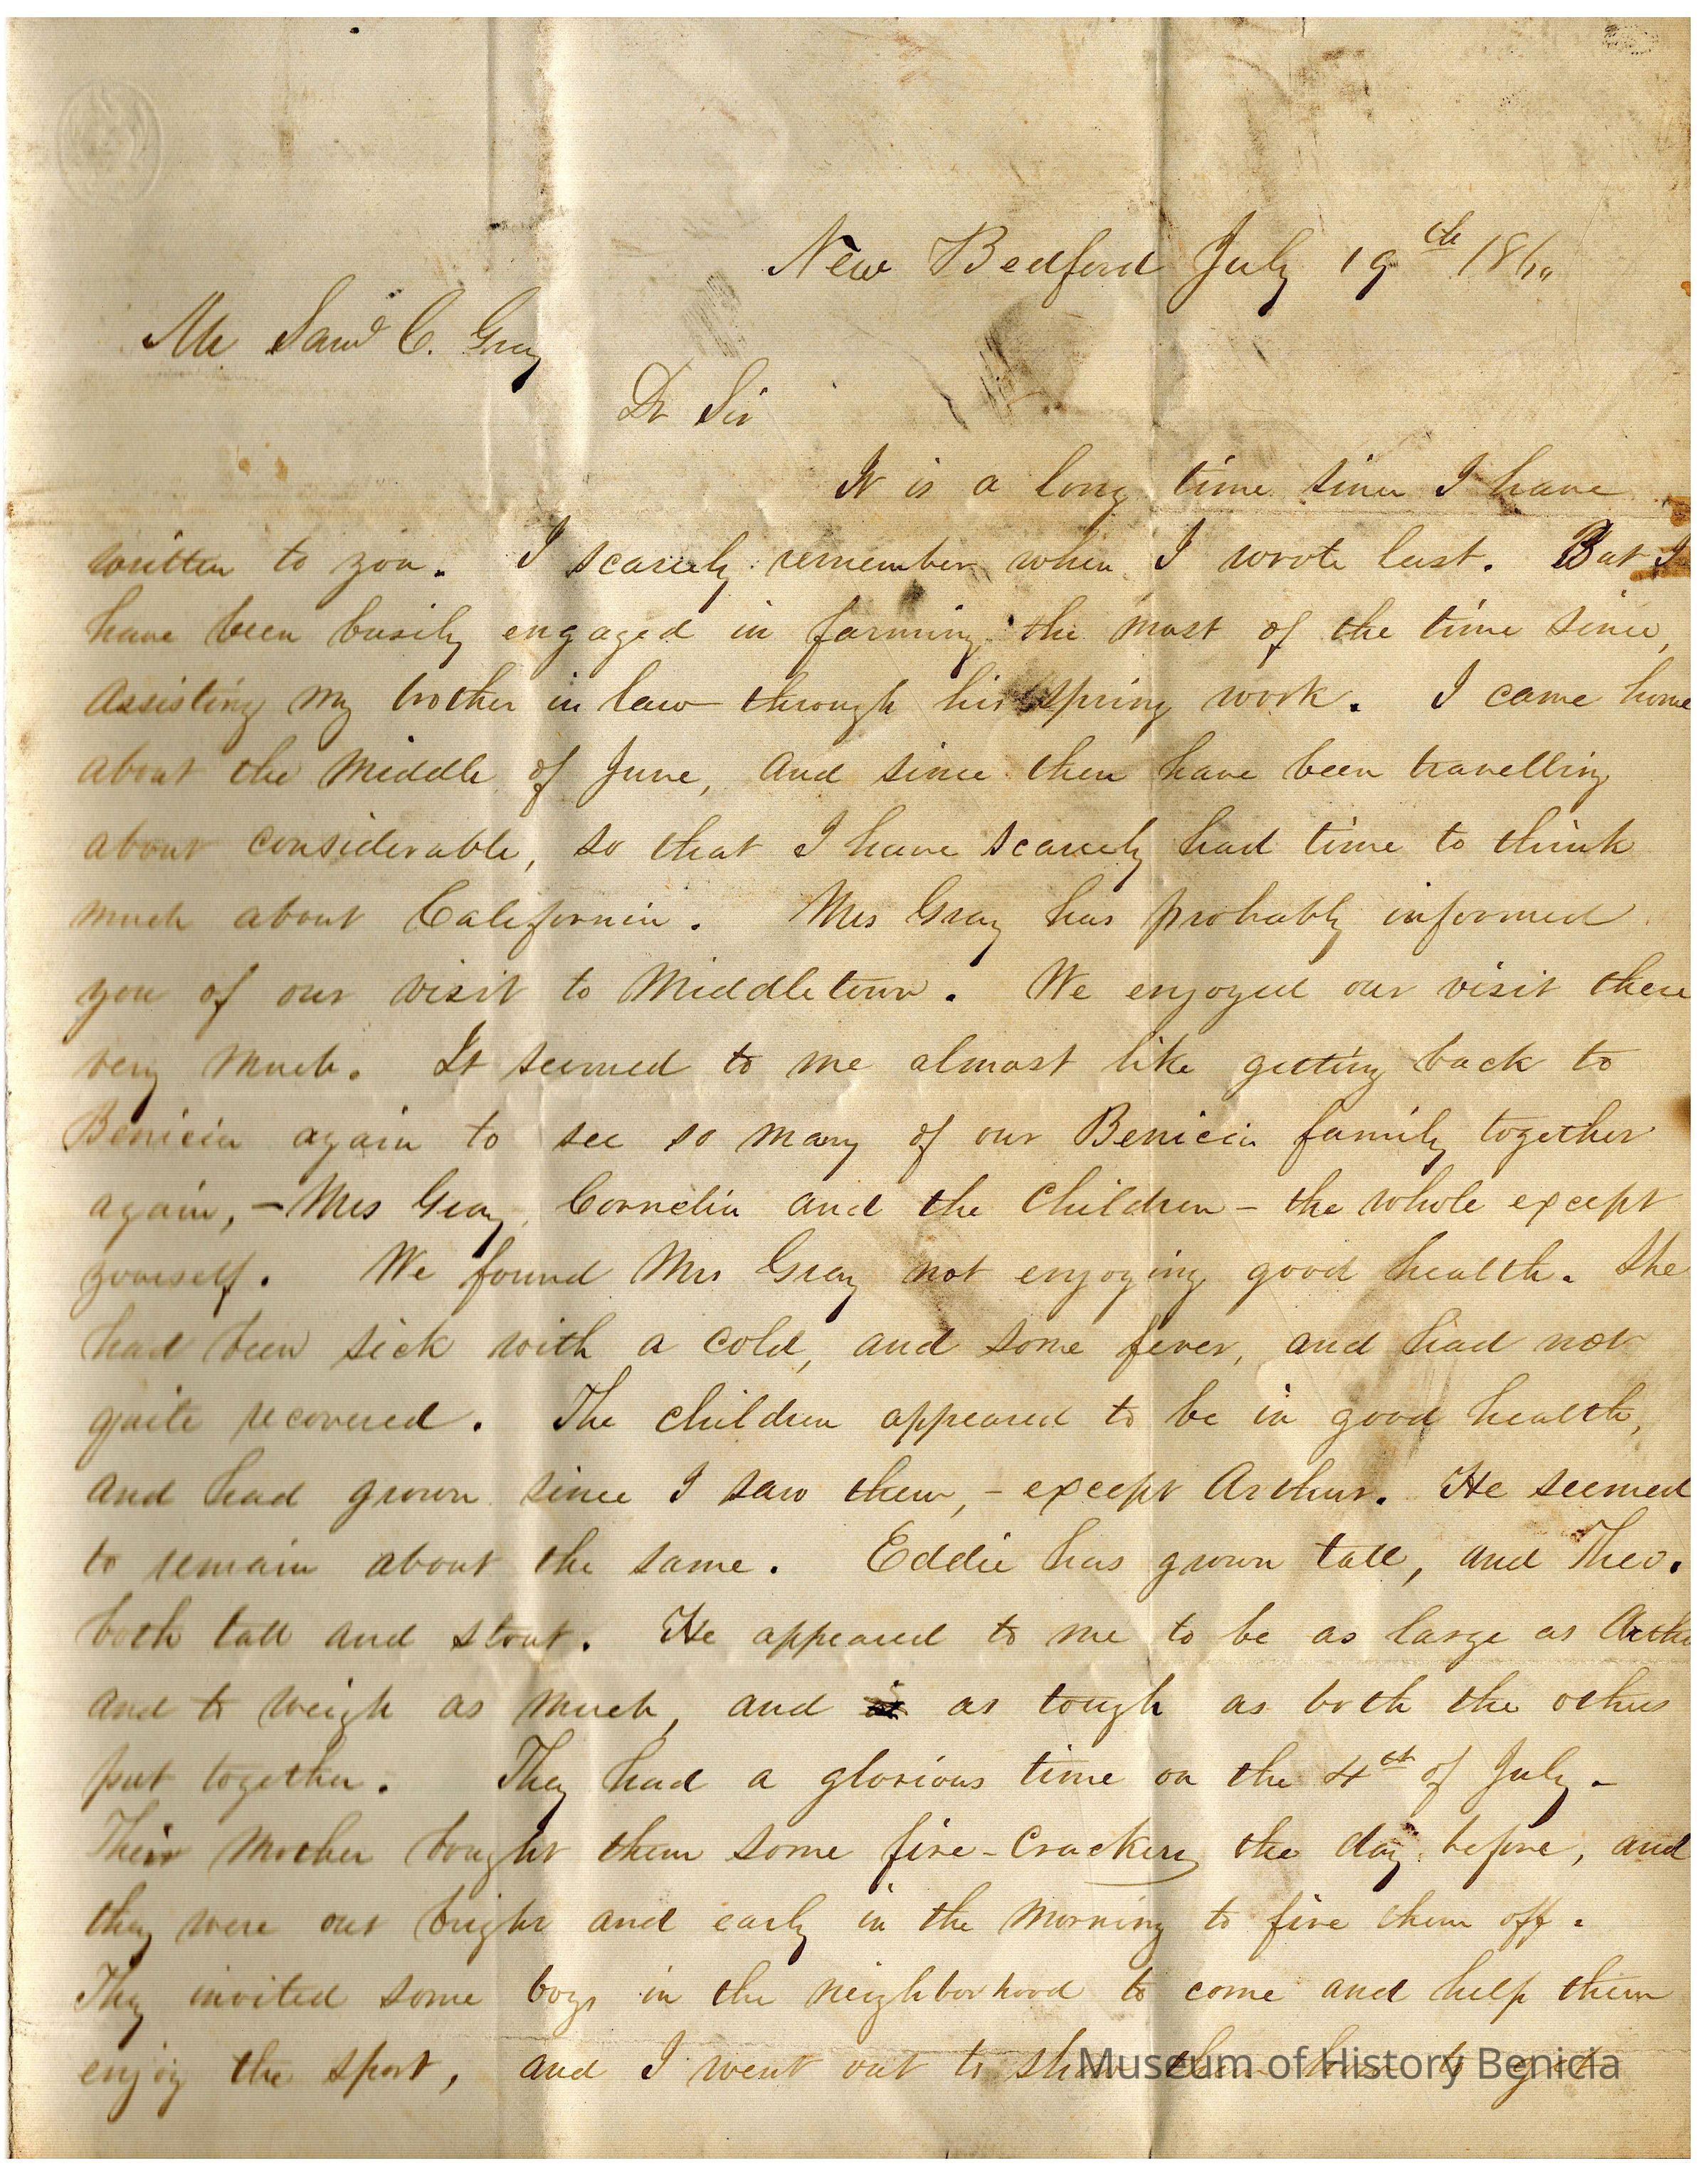 New Bedford July 19th 1860
Mr Saml C. Gray
Dr Sir
It is a long time since I have
written to you. I scarcely remember when I wrote last. But I
have been busily engaged in farming the most of the time since,
assisting my brother in law through his spring work. I came home
about the middle of June, and since then have been travelling
about considerable, so that I have scarcely had time to think
much about California. Mrs Gray has probably informed
you of our visit to Middletown. We enjoyed our visit there
very much. It seemed to me almost like getting back to
Benicia again to see so many of our Benicia family together
again, - Mrs Gray, Cornelia and the children - the whole except
yourself. We found Mrs Gray not enjoying good health. She
had been sick with a cold, and some fever, and had not
quite recovered. The children appeared to be in good health,
and had grown since I saw them, - except Arthur. He seemed
to remain about the same. Eddie has grown tall, and Theo.
both tall and stout. He appeared to me to be as large as Arthu
and to weigh as much, and as tough as both the others
put together. They had a glorious time on the 4th of July -
Their mother bought them some fire-crackers the day before, and
they were out bright and early in the morning to fire them off.
They invited some boys in the neighborhood to come and help them
enjoy the sport, and I went out to show them how to get
Museum of History Benicia